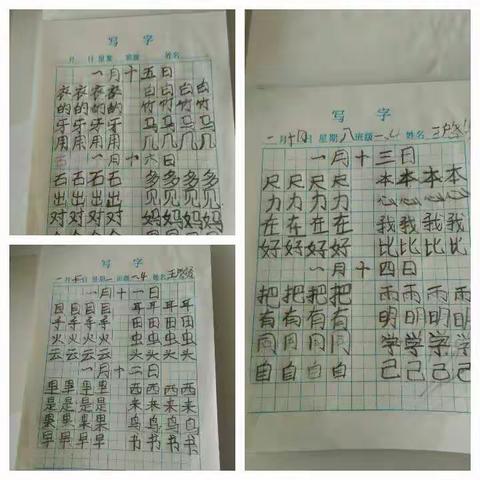 写 字
月 日 星期 班级 姓名
一月十五日
衣衣衣衣 白白白白
的的的的 竹竹竹竹
牙牙牙牙 马马马马
用用用用 几几几几
一月十六日
石石石石 多多多多
出出出出 见见见见
对对对对 妈妈妈妈
写 字
一月 日 星期一 班级一.4 姓名王
一月十一日
目目目目 耳耳耳耳
手手手手 田田田田
火火火火 虫虫虫虫
云云云云 头头头头
一月十二日
里里里里 西西西西
是是是是 来未未来
果果果果 鸟鸟鸟鸟
早早早早 书书书书
写 字
一月 日 星期 八 班级 一.4 姓名 王
一月十三日
尺尺尺尺 本本本本
力力力力 心心心心
在在在在 我我我我
好好好好 比比比比
一月十四日
把把把把 雨雨雨雨
有有有有 明明明明
同同同同 学学学学
自自自自 己己己己